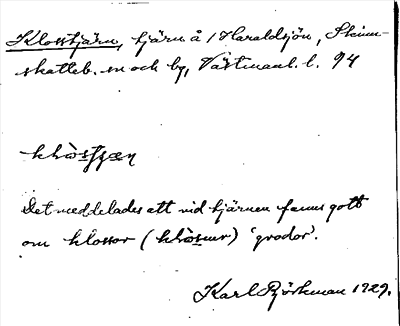 Klosstjärn, tjärn å / Haraldsjön, Skinn-
skatteb. sn och by, Västmanl. l. 94
Det meddelades att vid tjärnen fanns gott
om klossor ( ) 'grodor'.
Karl Björkman 1929.